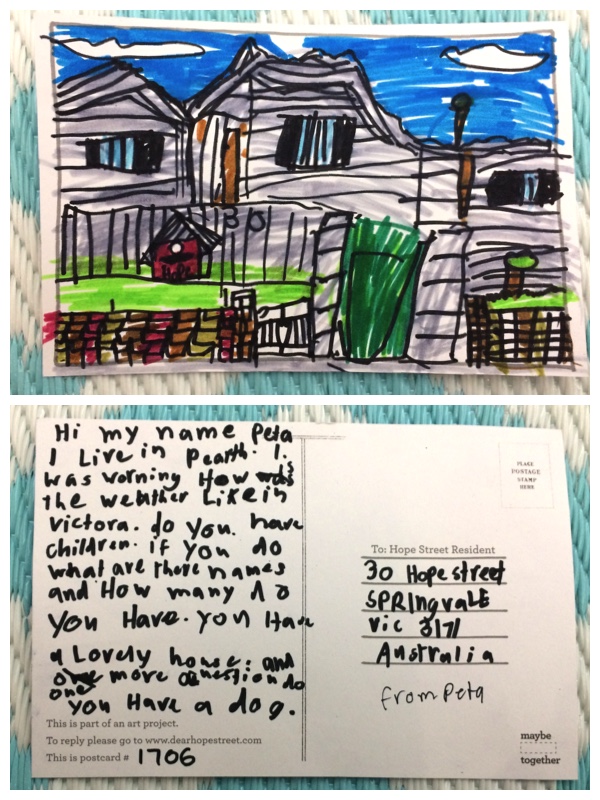 30
Hi my name Peta
I Live in Pearth. I.
was worning How
the weather Like in
victora. do you. have
children. if you do
what are there names
and How many do
you Have. you Hav
a Lovely house. and
one more Question do
you Have a dog.
This is part of an art project.
To reply please go to www.dearhopestreet.com
This is postcard # 1706
PLACE
POSTAGE
STAMP
HERE
To: Hope Street Resident
30 Hope street
SPRIngvaLE
Vic 3171
Australia
from Peta
maybe
together